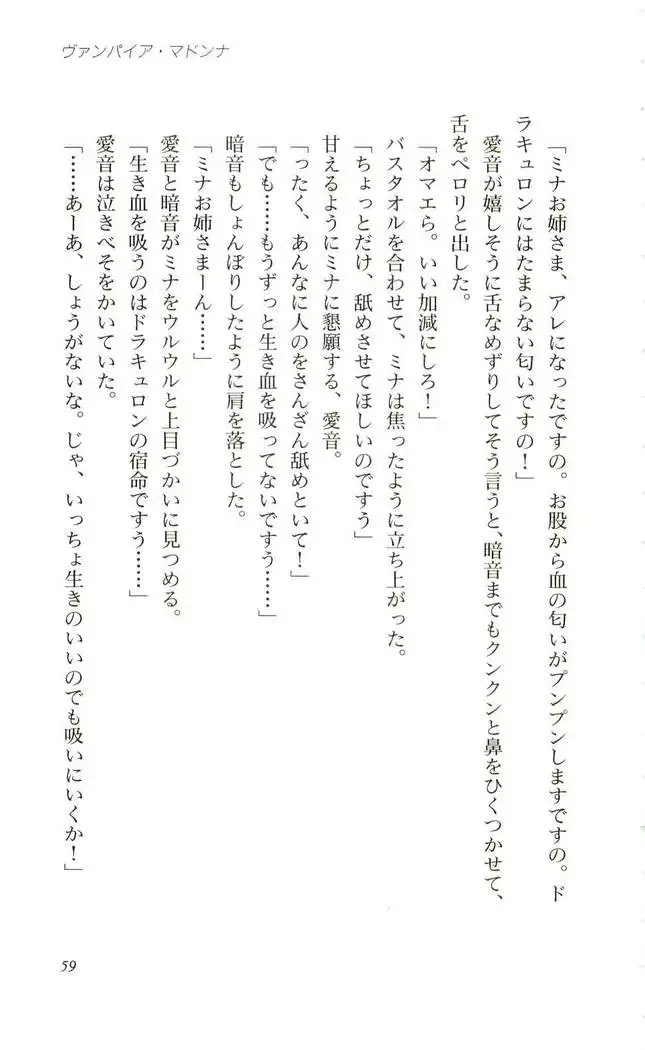 ヴァンパイア・マドンナ
「ミナお姉さま、アレになったですの。お股から血の匂いがプンプンしますですの。ド
ラキュロンにはたまらない匂いですの！」
愛音が嬉しそうに舌なめずりしてそう言うと、暗音までもクンクンと鼻をひくつかせて、
舌をペロリと出した。
「オマエら。いい加減にしろ！」
バスタオルを合わせて、ミナは焦ったように立ち上がった。
「ちょっとだけ、舐めさせてほしいのですう」
甘えるようにミナに懇願する、愛音。
「ったく、あんなに人のをさんざん舐めといて！」
「でも……もうずっと生き血を吸ってないですう……」
暗音もしょんぼりしたように肩を落とした。
「ミナお姉さまーん……」
愛音と暗音がミナをウルウルと上目づかいに見つめる。
「生き血を吸うのはドラキュロンの宿命ですう……」
愛音は泣きべそをかいていた。
「……あーあ、しょうがないな。じゃ、いっちょ生きのいいのでも吸いにいくか！」
59